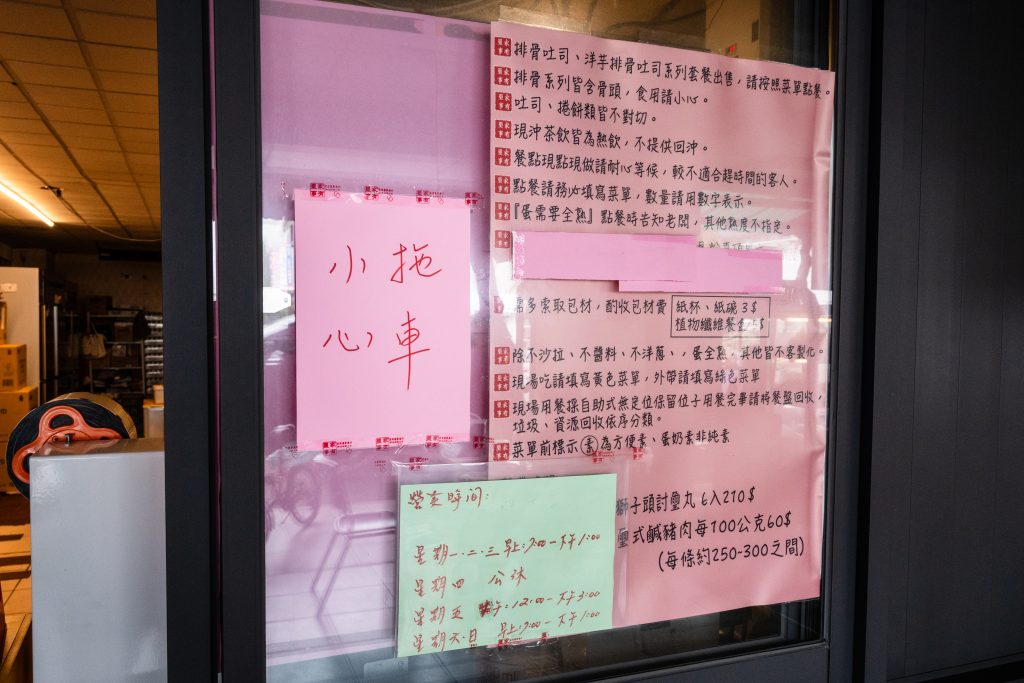 小拖
心車
排骨吐司、洋芋排骨吐司系列套餐出售，請按照菜單點餐。
排骨系列皆含骨頭，食用請小心。
吐司、捲餅類皆不對切。
現沖茶飲皆為熱飲，不提供回沖。
餐點現點現做請耐心等候，較不適合趕時間的客人。
點餐請務必填寫菜單，數量請用數字表示。
『蛋需要全熟』點餐時告知老闆，其他熟度不指定。
需多索取包材，酌收包材費
紙杯、紙碗 3$
植物纖維餐盒 5$
除不沙拉、不醬料、不洋蔥、、蛋全熟，其他皆不客製化。
現場吃請填寫黃色菜單，外帶請填寫綠色菜單
現場用餐採自助式無定位保留位子用餐完畢請將餐盤回收，
垃圾、資源回收依序分類。
菜單前標示(素)為方便素、蛋奶素非純素
獅子頭討璽丸 6入210$
璽式鹹豬肉每100公克60$
(每條約250~300之間)
營業時間:
星期一.二.三 早上:7:00-下午1:00
星期四 公休
星期五 午:12:00-下午3:00
星期六.日 早上:7:00-下午1:00